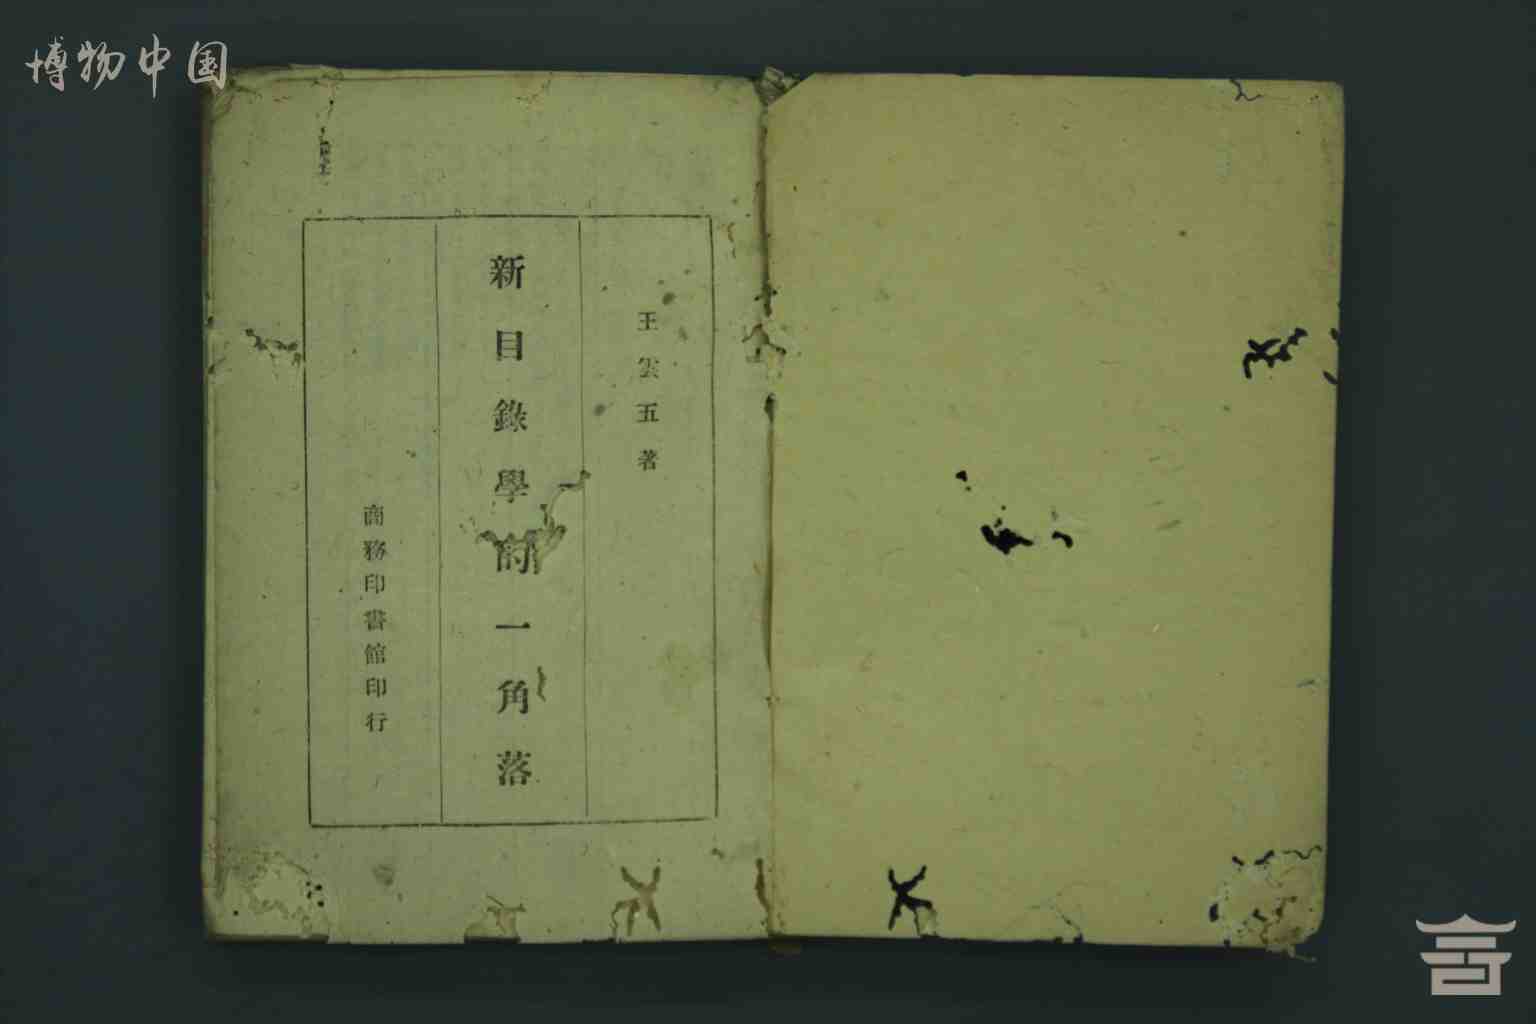 博物中国
王雲五著
新目錄學的一角落
商務印書館印行